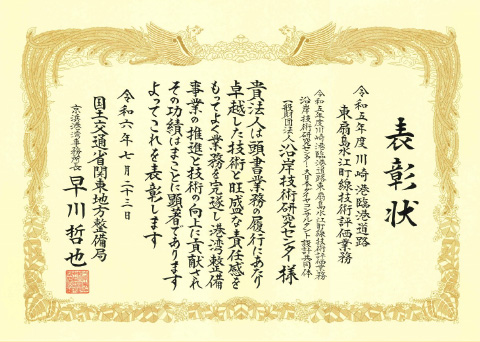 表彰状
令和五年度 川崎港臨港道路
東扇島水江町線技術評価業務
令和五年度川崎港臨港道路東扇島水江町線技術評価業務
沿岸技術研究センター・大日本ダイヤコンサルタント設計共同体
一般財団法人 沿岸技術研究センター 様
貴法人は頭書業務の履行にあたり
卓越した技術と旺盛な責任感を
もってよく業務を完遂し港湾整備
事業の推進と技術の向上に貢献され
その功績はまことに顕著であります
よってこれを表彰します
令和六年七月二十三日
国土交通省関東地方整備局
京浜港湾事務所長 早川哲也